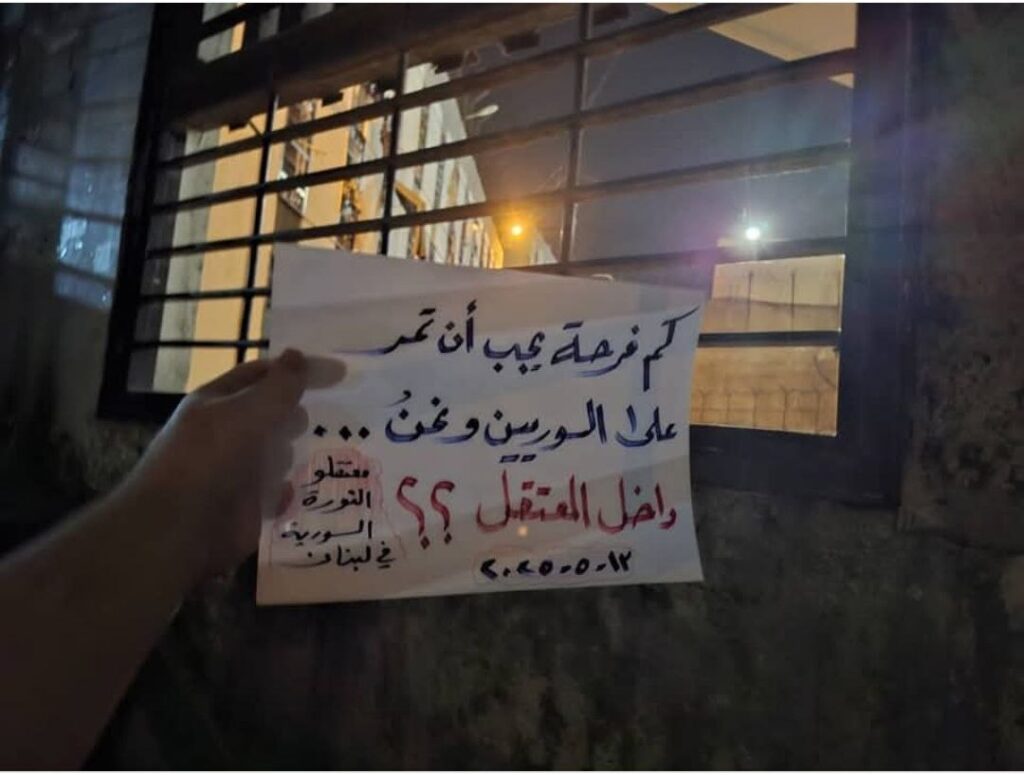 كم فرحة يجب أن تمر
على السوريين ونحنُ ...
داخل المعتقل ؟؟
١٣-٥-٢٠٢٥
معتقلو
الثورة
السورية
في لبنان